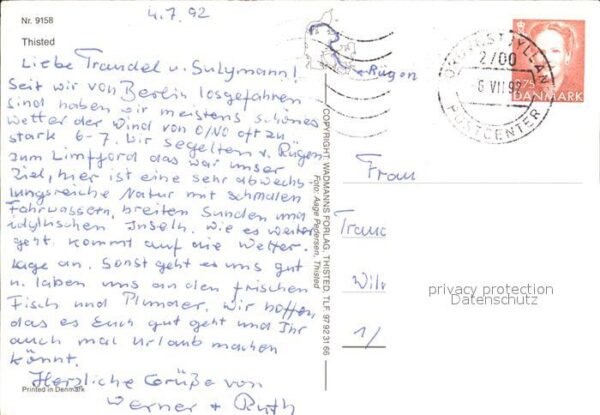 4.7.92
Nr. 9158
Thisted
Liebe Traudel u. Sulzmann!
Seit wir von Berlin losgefahren
sind haben wir meistens schönes
Wetter der Wind von O/NO oft zu
stark 6-7. Wir segelten v. Rügen
zum Limfjord das war unser
Ziel, hier ist eine sehr abwechs-
lungsreiche Natur mit schmalen
Fahrwassern, breiten Sunden und
idyllischen Inseln. Wie es weiter
geht kommt auf die Wetter-
lage an. Sonst geht es uns gut
u. laben uns an den frischen
Fisch und Plunder. Wir hoffen
das es Euch gut geht und Ihr
auch mal Urlaub machen
könnt.
Herzliche Grüße von
Werner + Ruth
Printed in Denmark
Rügen
COPYRIGHT: WADMANNS FORLAG, THISTED. TLF. 97 92 31 66
Foto: Aage Pedersen, Thisted
2700
6 VII 92
POSTCENTER
DANMARK
Frau
1/
privacy protection
Datenschutz